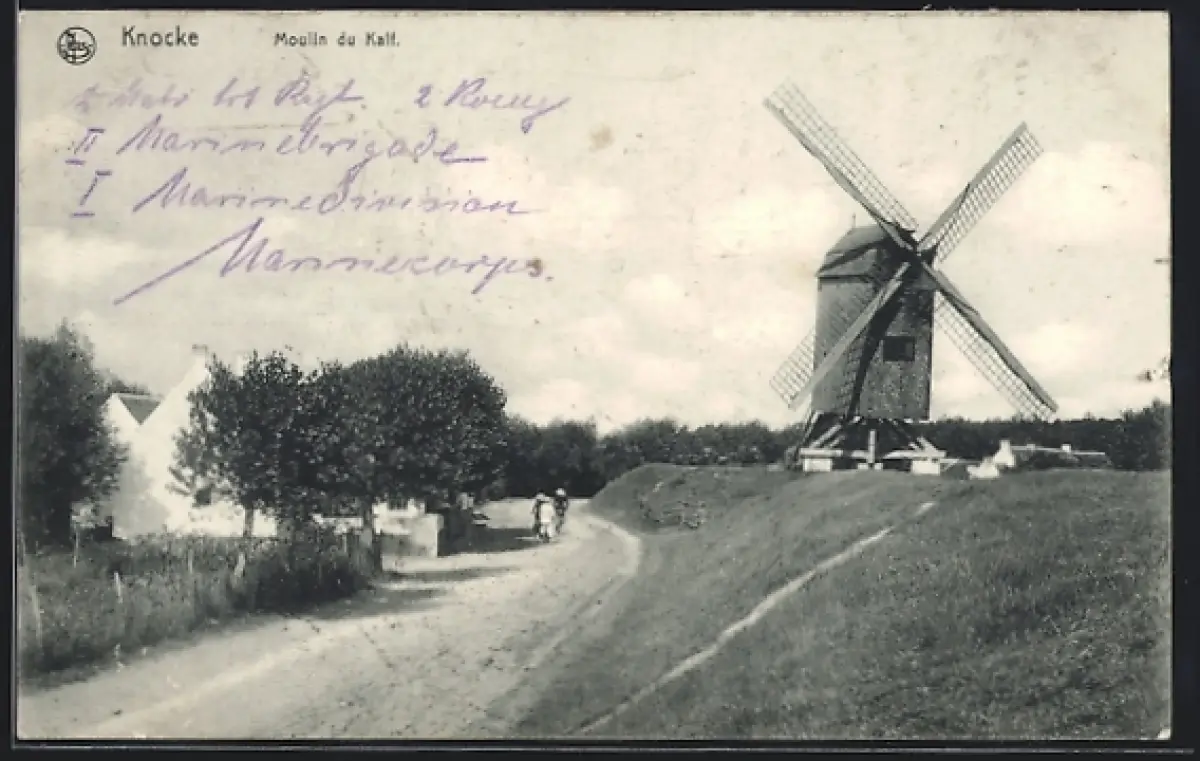 Knocke Moulin du Kalf.
Rgt. 2
II Marinebrigade
I Marinedivision
Marinecorps.